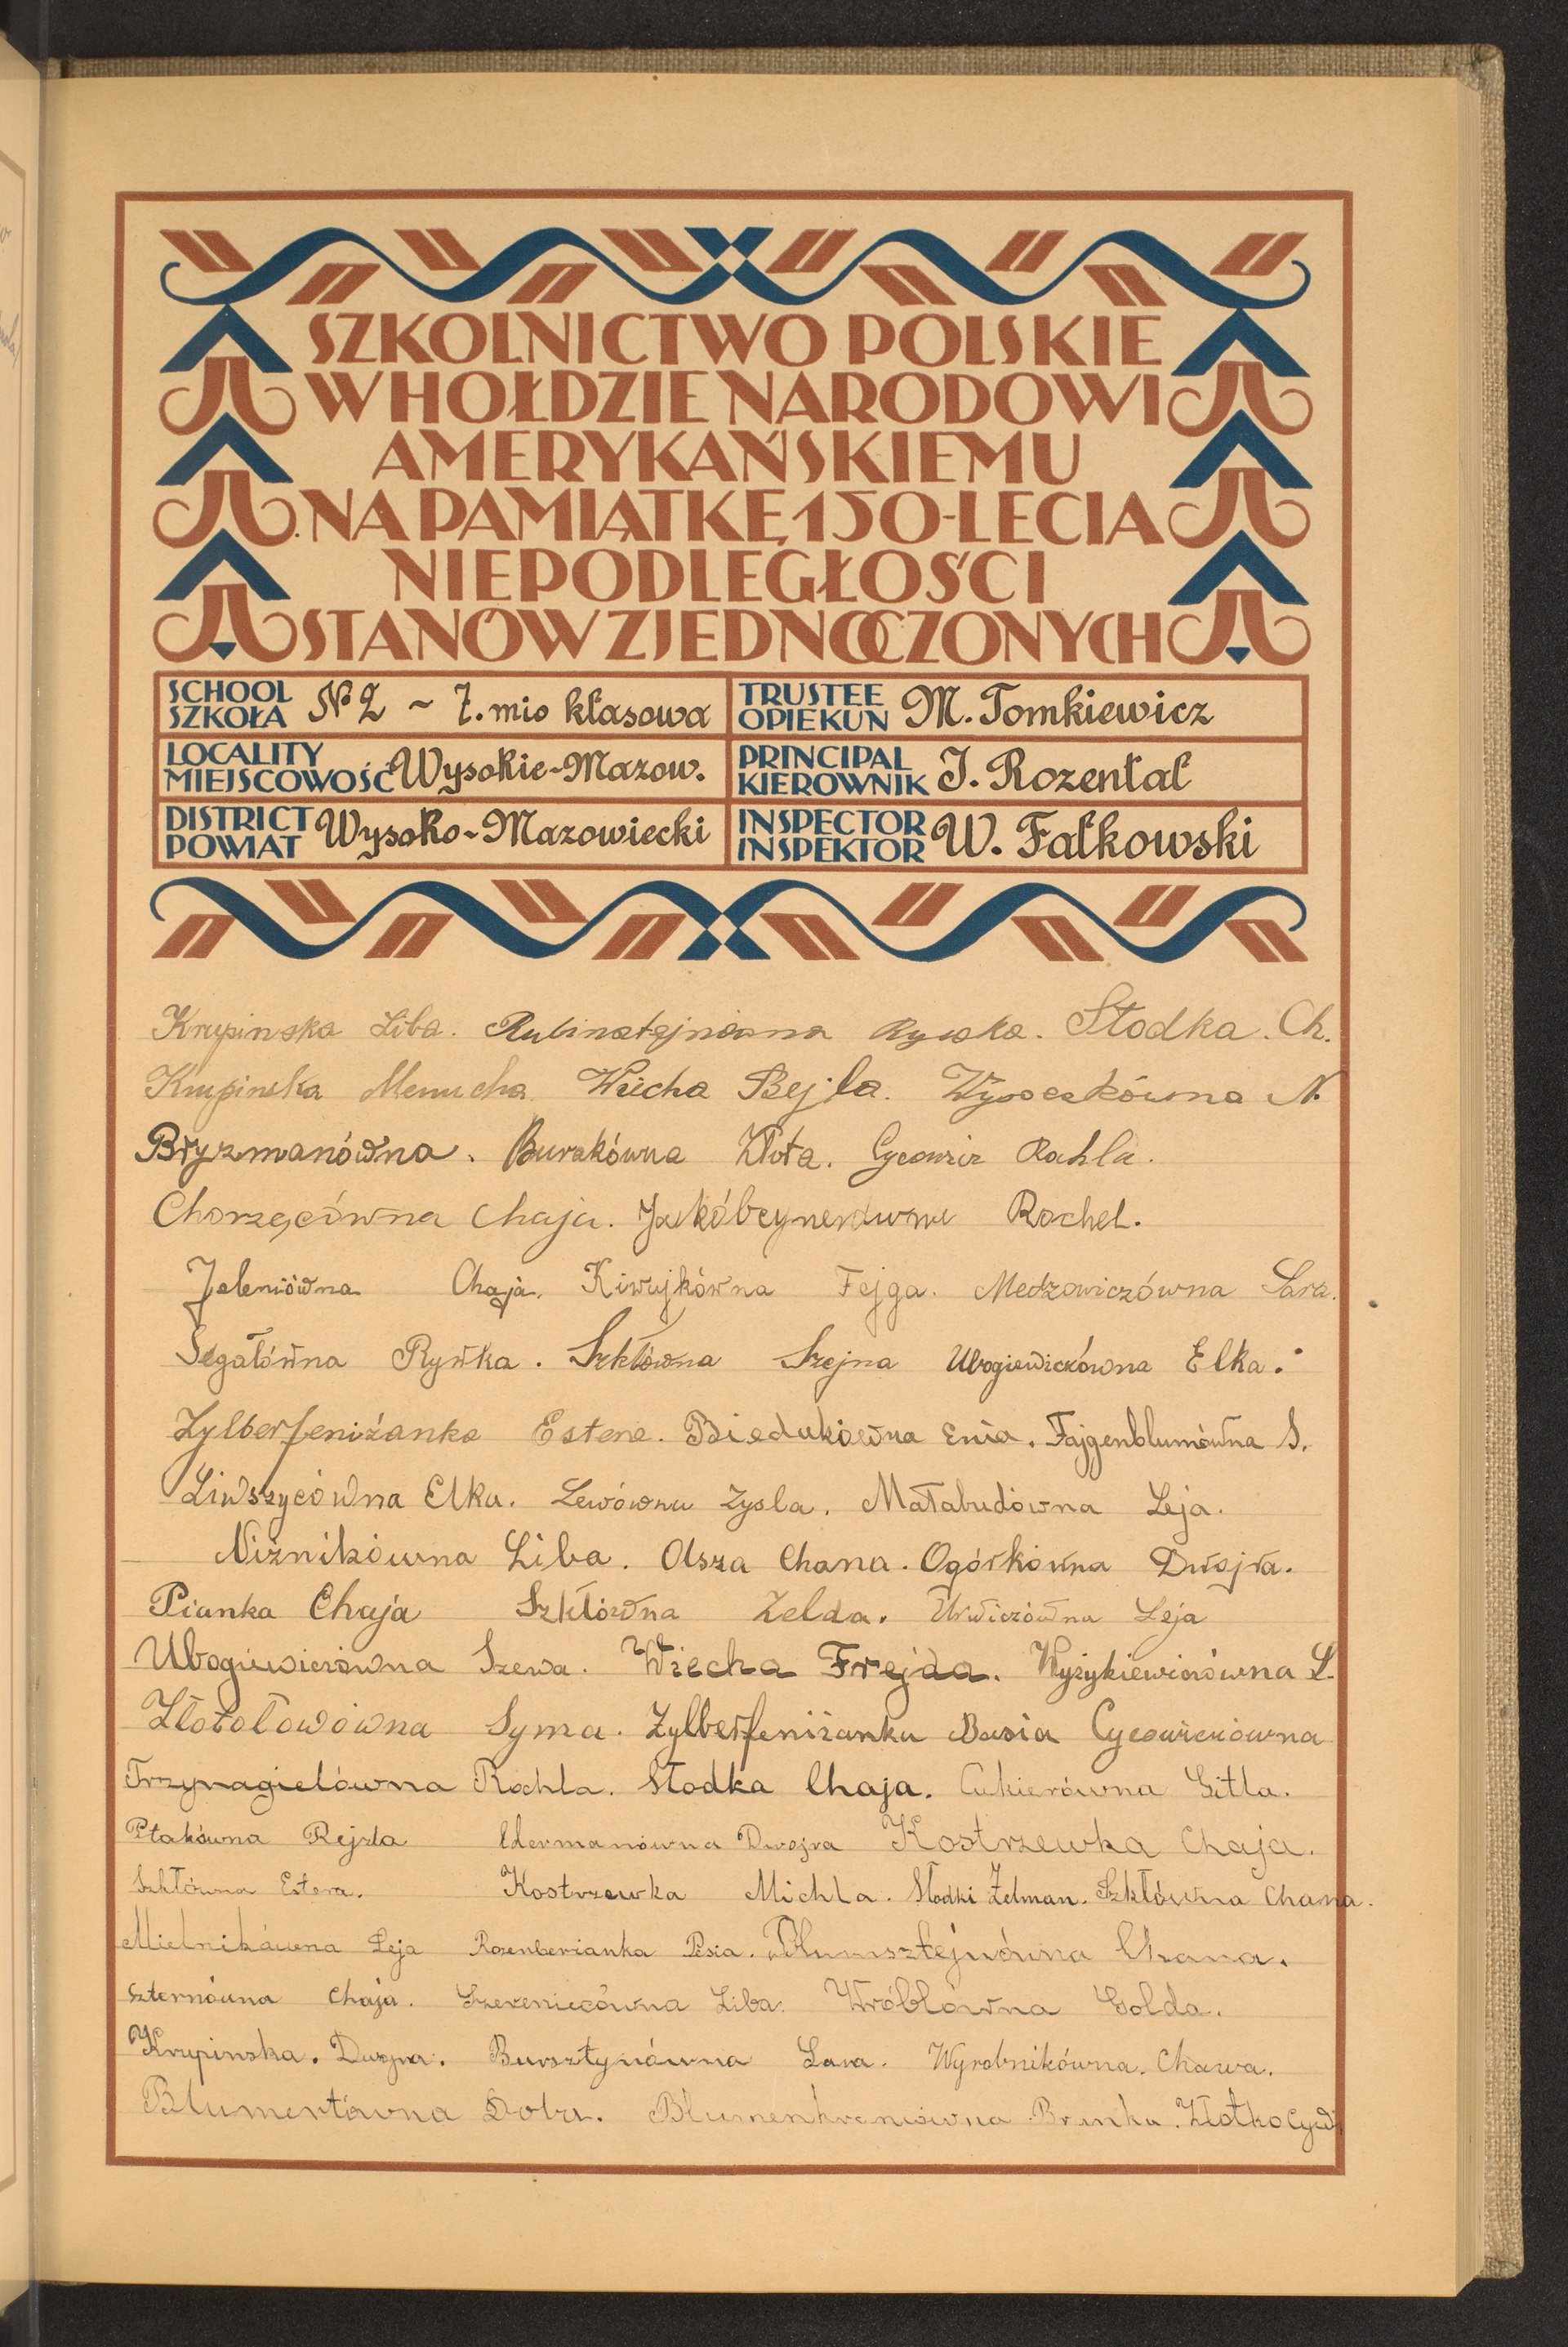 SZKOLNICTWO POLSKIE
W HOŁDZIE NARODOWI
AMERYKAŃSKIEMU
NA PAMIĄTKĘ 150-LECIA
NIEPODLEGŁOŚCI
STANÓW ZJEDNOCZONYCH
SCHOOL SZKOŁA № 2 ~ 7.mio klasowa
TRUSTEE OPIEKUN M. Tomkiewicz
LOCALITY MIEJSCOWOŚĆ Wysokie-Mazow.
PRINCIPAL KIEROWNIK J. Rozental
DISTRICT POWIAT Wysoko-Mazowiecki
INSPECTOR INSPEKTOR W. Fałkowski
Krupinska Liba. Rubinsztejnówna Rywka. Słodka. Ch.
Krupinska Menucha. Wiecha Bejla. Wysockówna N.
Bryzmanówna. Burakówna Złota. Cycowicz Rachla.
Chorzęcówna Chaja. Rochel.
Jeleniówna Chaja. Kiwujkówna Fejga. Medzowiczówna Sara.
Segałówna Rywka. Szkłówna Szejna Ubogiewiczówna Elka.
Zylberfeniżanka Estera. Biedakówna Enia. Fajgenblumówna S.
Liwszycówna Elka. Lewówna Zysla. Małabudówna Leja.
Niżnikówna Liba. Olsza Chana. Ogórkówna Dwojra.
Pianka Chaja Szkłówna Zelda. Urwiczówna Leja
Ubogiewiczówna Szewa. Wiecha Frejda. Wyżykiewiczówna L.
Złotołowówna Syma. Zylberfeniżanka Basia Cycowiczówna
Trzynagielówna Rochla. Słodka Chaja. Cukierówna Gitla.
Ptakówna Rejzla Edermanówna Dwojra Kostrzewka Chaja.
Szkłówna Estera. Kostrzewka Michla. Słodki Zelman. Szkłówna Chana.
Mielnikówna Leja Rozenberianka Pesia. Blumsztejnówna Chana.
Szternówna Chaja. Szereniecówna Liba. Wróblówna Golda.
Krupinska. Dwojra. Bursztynówna Sara. Wyrobnikówna. Chawa.
Blumertówna Dobra. Blumenkrancówna Złotko